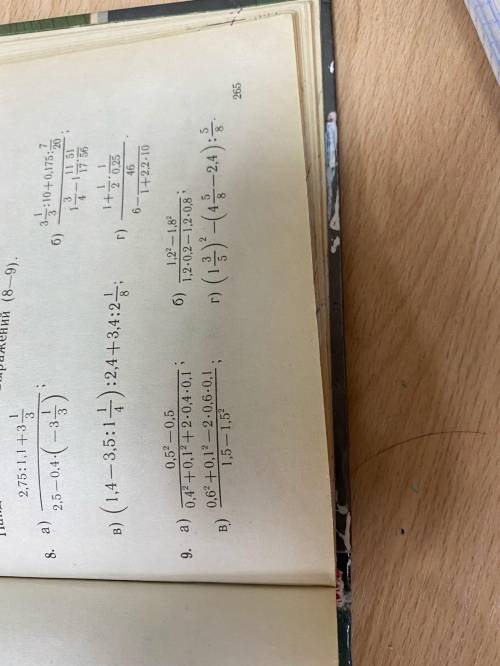 выражений (8—9).
8. а) \frac{2,75:1,1+3\frac{1}{3}}{2,5-0,4\cdot\left(-3\frac{1}{3}\right)}; б) \frac{3\frac{1}{3}:10+0,175:\frac{7}{20}}{1\frac{3}{4}-1\frac{11}{17}\cdot\frac{51}{56}};
в) \left(1,4-3,5:1\frac{1}{4}\right):2,4+3,4:2\frac{1}{8}; г) \frac{1+\frac{1}{2}:\frac{1}{0,25}}{6-\frac{46}{1+2,2\cdot10}}.
9. а) \frac{0,5^2-0,5}{0,4^2+0,1^2+2\cdot0,4\cdot0,1}; б) \frac{1,2^2-1,8^2}{1,2\cdot0,2-1,2\cdot0,8};
в) \frac{0,6^2+0,1^2-2\cdot0,6\cdot0,1}{1,5-1,5^2}; г) \left(1\frac{3}{5}\right)^2-\left(4\frac{5}{8}-2,4\right):\frac{5}{8}.
265